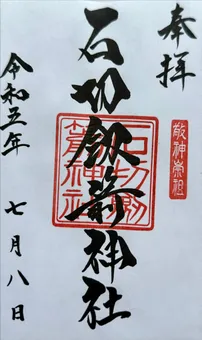 奉拝
敬神崇祖
石切劔箭神社
石切劔箭神社
令和五年 七月八日